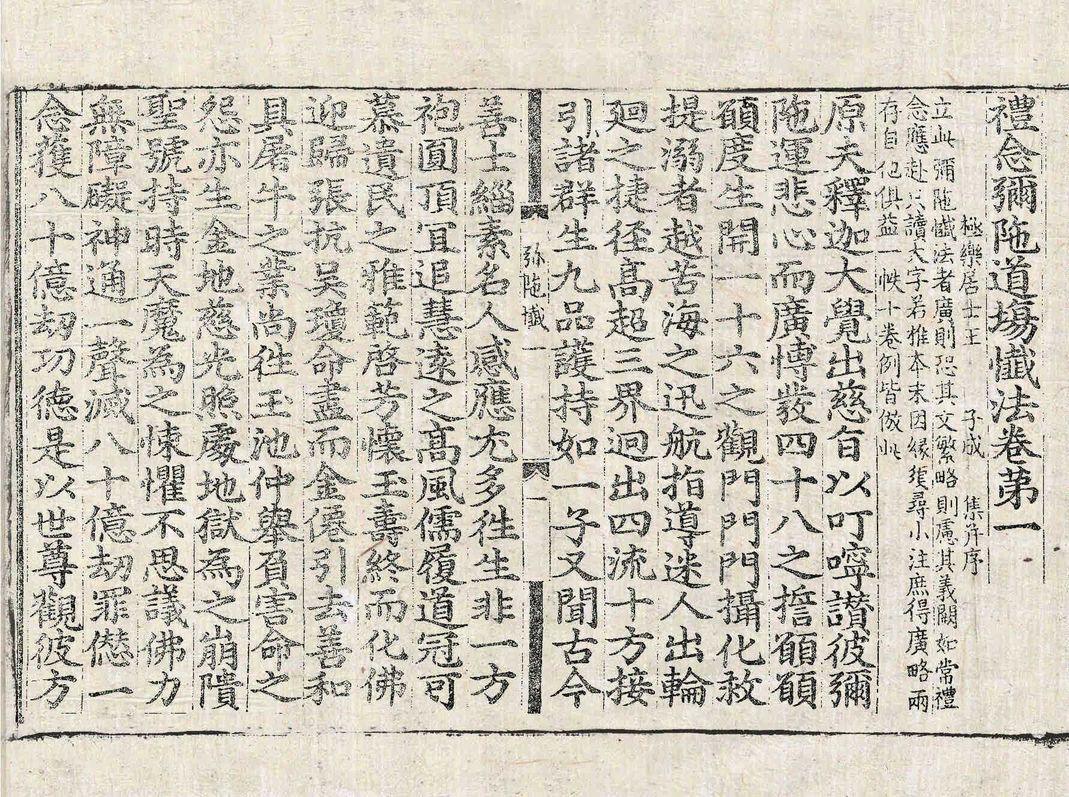 禮念彌陁道場懺法卷苐一
極樂居士王 子成 集并序
立此彌陁懺法者廣則恐其文繁略則慮其義闕如常禮
念應赴只讀大字若推本末因緣須尋小注庶得廣略兩
存自他俱益 帙十卷例皆倣此
原夫釋迦大覺出慈旨以叮嚀讃彼彌
陁運悲心而廣愽發四十八之擔願願
願度生開一十六之觀門門門攝化救
提溺者越苦海之迅航指導迷人出輪
廻之捷径髙超三界迥出四流十方接
引諸群生九品護持如一子又聞古今
弥陁懺一
一
善士緇素名人感應尤多徃生非一方
袍圓頂冝追慧遠之髙風儒履道冠可
慕遺民之雅範啓芳懷玉壽終而化佛
迎歸張抗吴瓊命盡而金僊引去善和
具屠牛之業尚徃玉池仲舉負害命之
怨亦生金地慈光照處地獄為之崩隤
聖號持時天魔為之悚懼不思議佛力
無障礙神通一聲滅八十億劫罪愆一
念獲八十億劫功徳是以世尊觀彼方